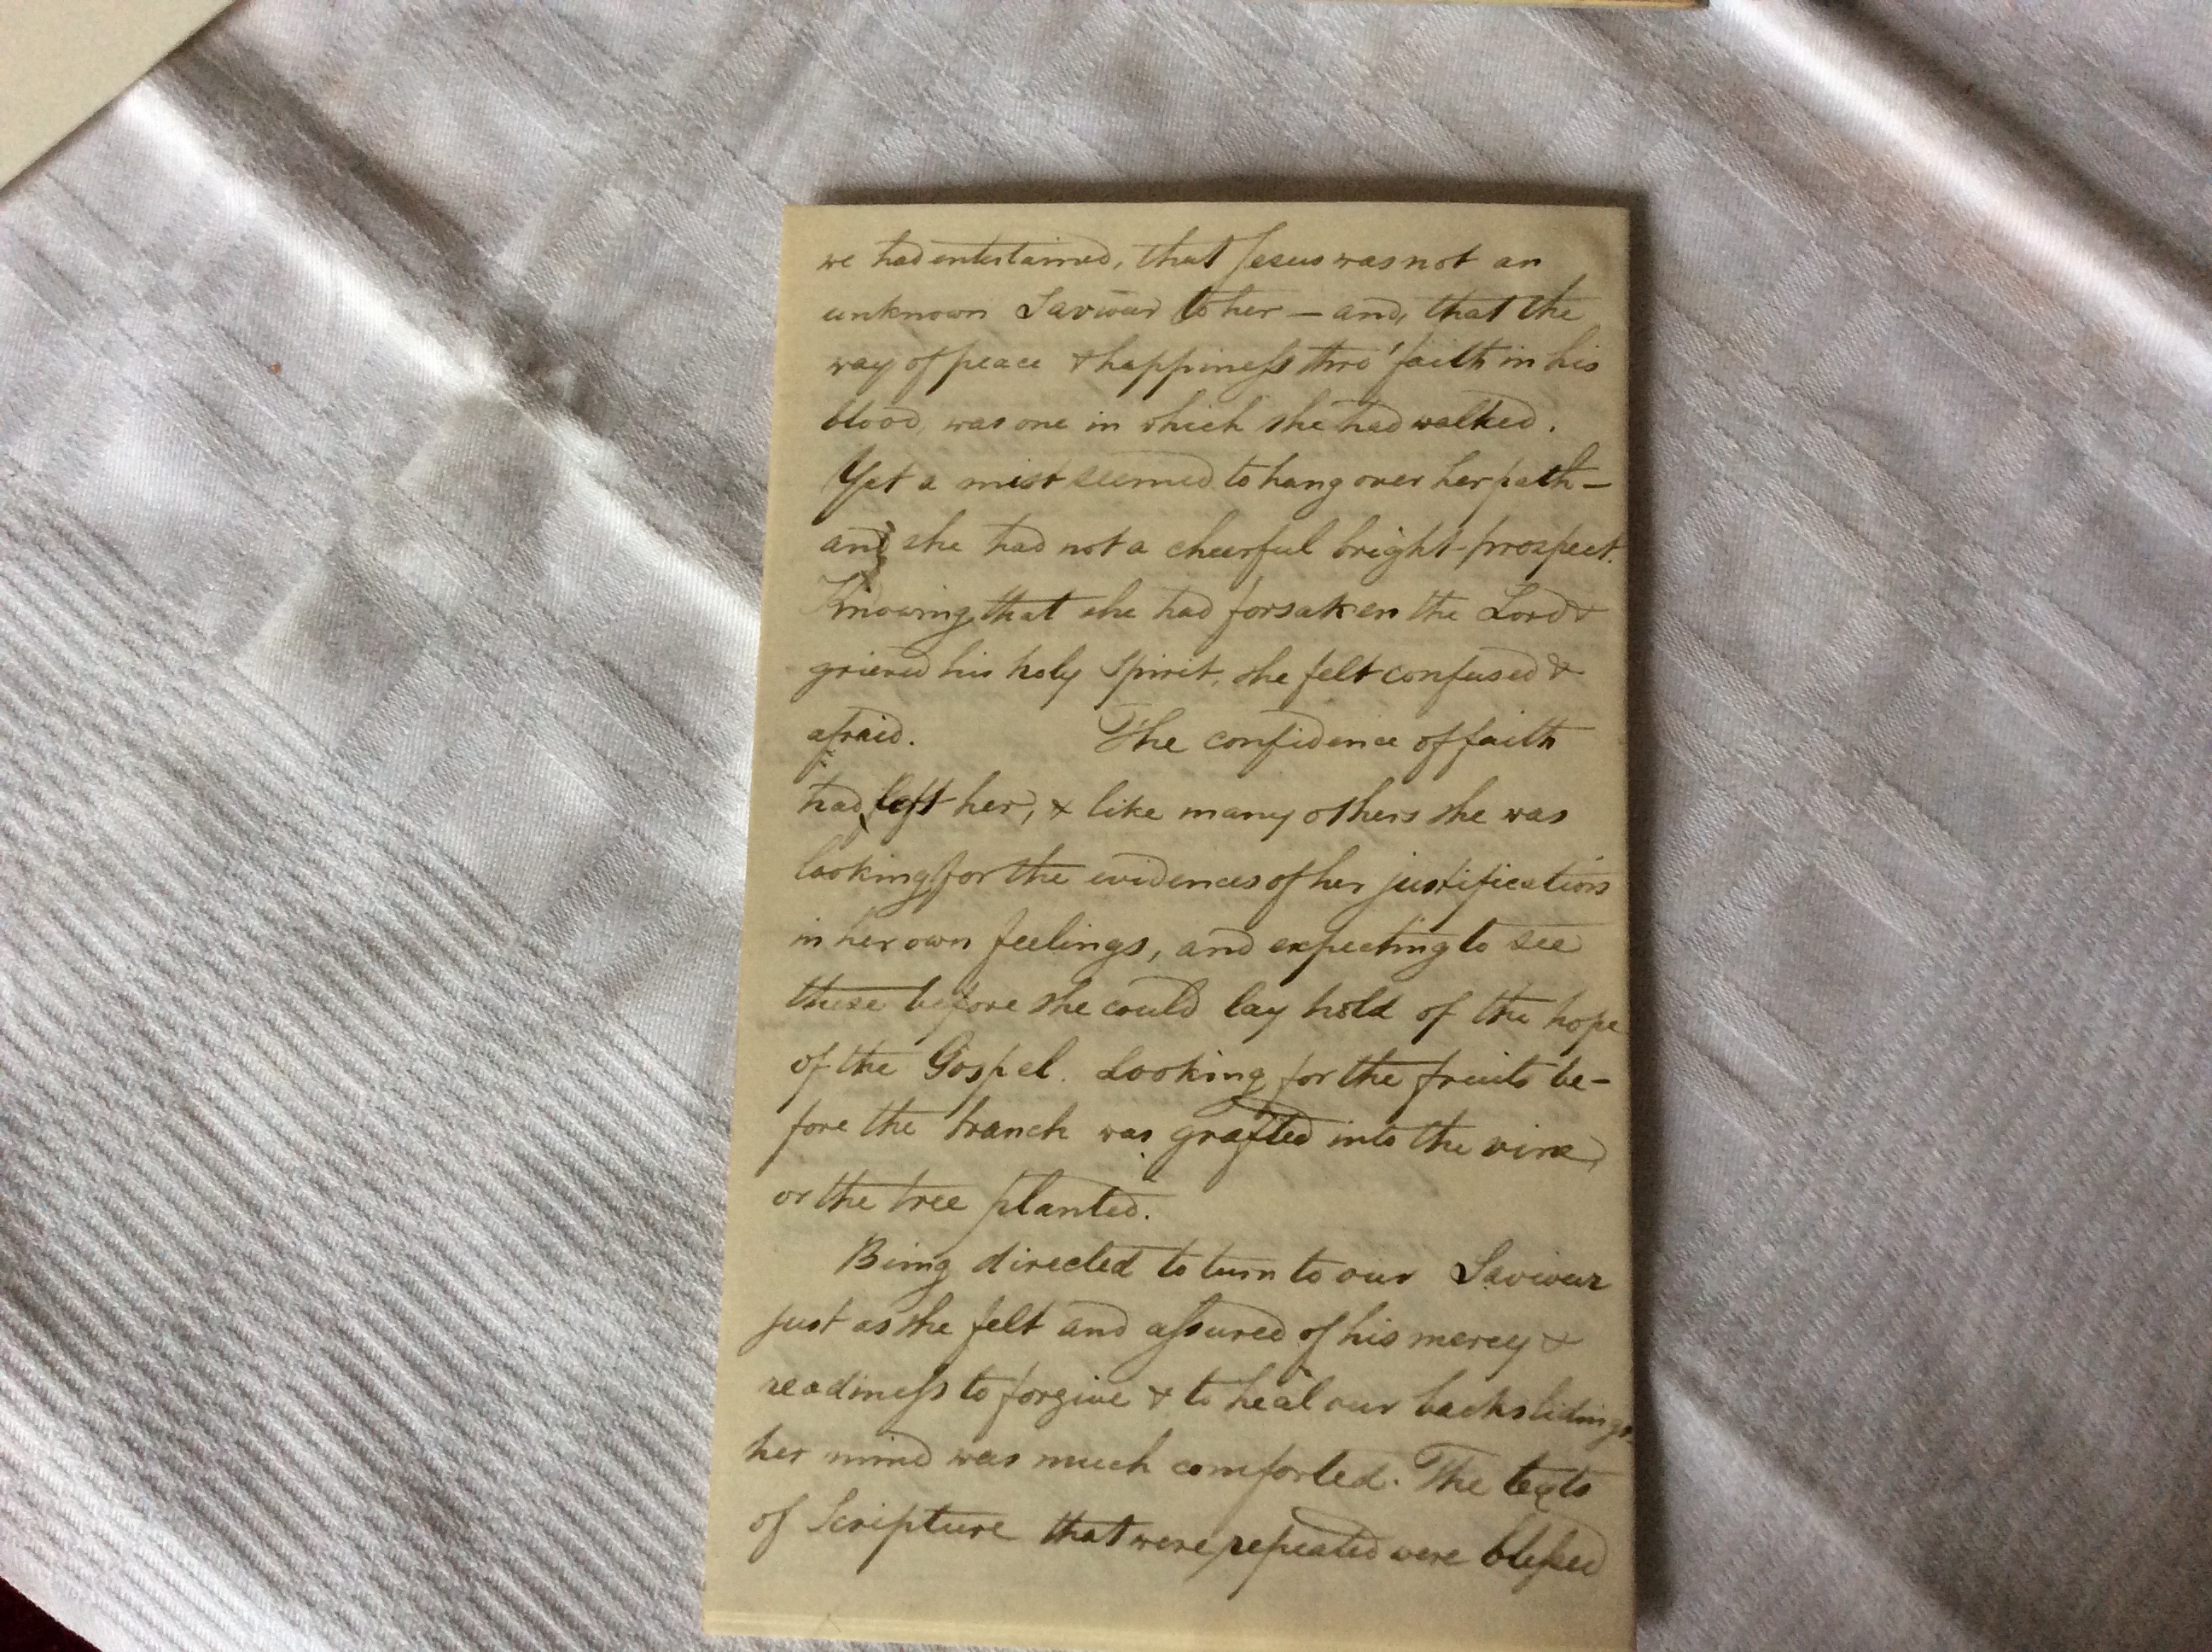 we had entertained, that Jesus was not an
unknown Saviour to her — and, that the
way of peace & happiness thro' faith in his
blood, was one in which she had walked.
Yet a mist seemed to hang over her path —
and she had not a cheerful bright prospect.
Knowing that she had forsaken the Lord &
grieved his holy Spirit, she felt confused &
afraid. The confidence of faith
had left her, & like many others she was
looking for the evidences of her justification
in her own feelings, and expecting to see
these before she could lay hold of the hope
of the Gospel. Looking for the fruits be-
fore the branch was grafted into the vine,
or the tree planted.
Being directed to turn to our Saviour
just as she felt and assured of his mercy &
readiness to forgive & to heal our backslidings
her mind was much comforted. The texts
of Scripture that were repeated were blessed